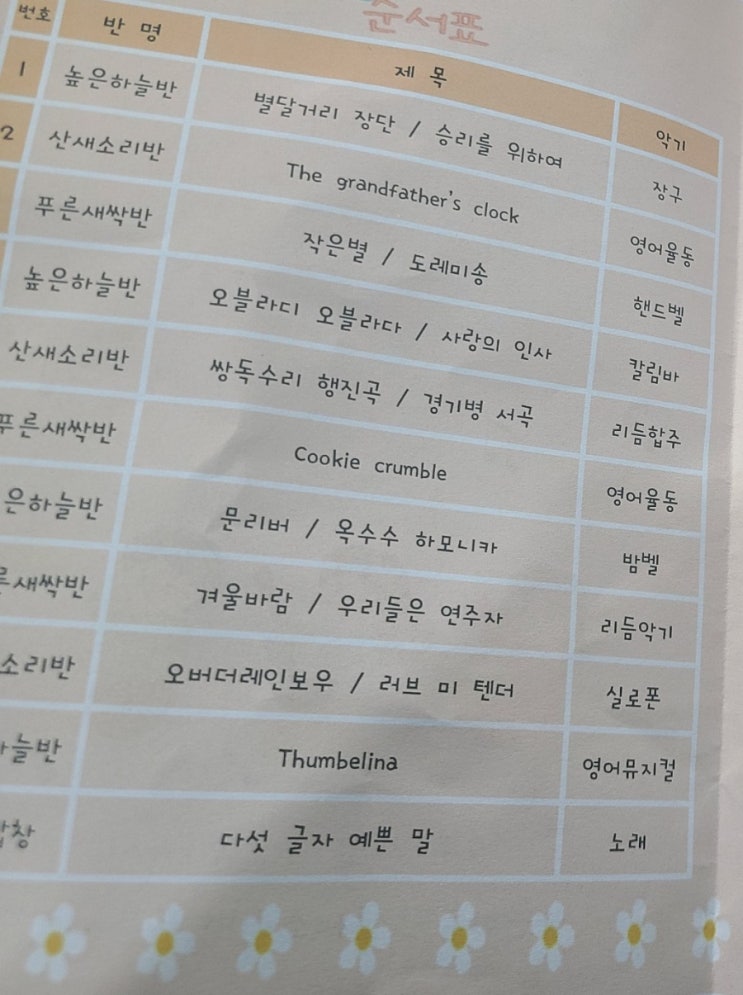 순서표
번호 반 명 제 목 악기
1 높은하늘반 별달거리 장단 / 승리를 위하여 장구
2 산새소리반 The grandfather's clock 영어율동
푸른새싹반 작은별 / 도레미송 핸드벨
높은하늘반 오블라디 오블라다 / 사랑의 인사 칼림바
산새소리반 쌍독수리 행진곡 / 경기병 서곡 리듬합주
푸른새싹반 Cookie crumble 영어율동
은하늘반 문리버 / 옥수수 하모니카 밤벨
른새싹반 겨울바람 / 우리들은 연주자 리듬악기
소리반 오버더레인보우 / 러브 미 텐더 실로폰
하늘반 Thumbelina 영어뮤지컬
합창 다섯 글자 예쁜 말 노래